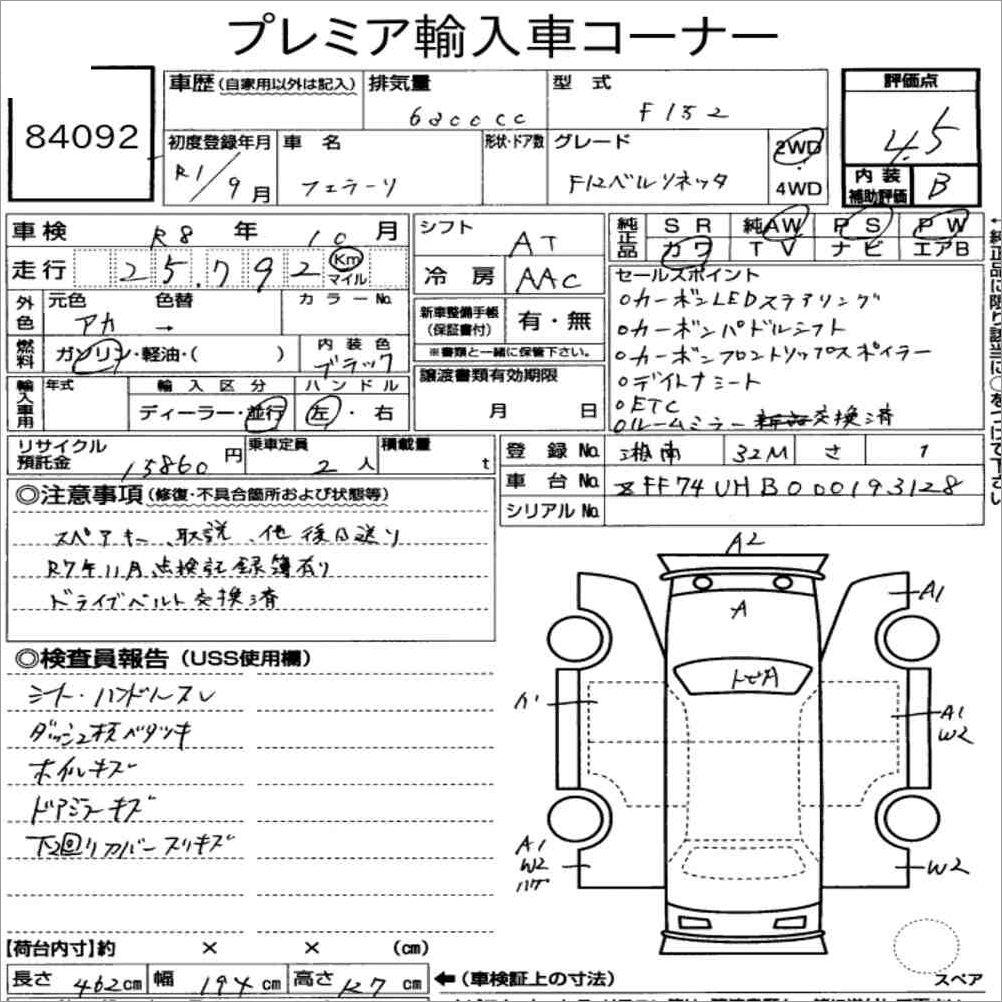 プレミア輸入車コーナー
84092
車歴(自家用以外は記入)
排気量 6200cc
型式 F152
評価点 4.5
初度登録年月 R1/9月
車名 フェラーリ
形状・ドア数
グレード F12ベルリネッタ
2WD
4WD
内装補助評価 B
車検 R8年10月
走行 25,792 Km マイル
シフト AT
冷房 AAC
純正品 SR 純AW PS PW
カワ TV ナビ エアB
外色 元色 アカ 色替 → カラーNo.
燃料 ガソリン・軽油・( )
内装色 ブラック
新車整備手帳(保証書付) 有・無
※書類と一緒に保管下さい。
譲渡書類有効期限
月 日
セールスポイント
○カーボンLEDステアリング
○カーボンパドルシフト
○カーボンフロントリップスポイラー
○デイトナシート
○ETC
○ルームミラー 交換済
輸入車用 年式 輸入区分 ハンドル
ディーラー・並行 左・右
リサイクル預託金 15860円
乗車定員 2人
積載量 t
登録No. 湘南 32M さ 1
車台No. ZFF74UHB000193128
シリアルNo.
◎注意事項(修復・不具合箇所および状態等)
スペアキー、取説、他後日送り
R7年11月点検記録簿有り
ドライブベルト交換済
◎検査員報告(USS使用欄)
シート・ハンドルスレ
ダッシュ板ベタツキ
ホイルキズ
ドアミラーキズ
下回りカバースリキズ
A2
A
トビA
A1
A1
W2
A1
W2
ハゲ
W2
スペア
【荷台内寸】約 × × (cm)
長さ 462cm 幅 194cm 高さ 127cm ←(車検証上の寸法)
←純正品に限り該当に○をつけて下さい